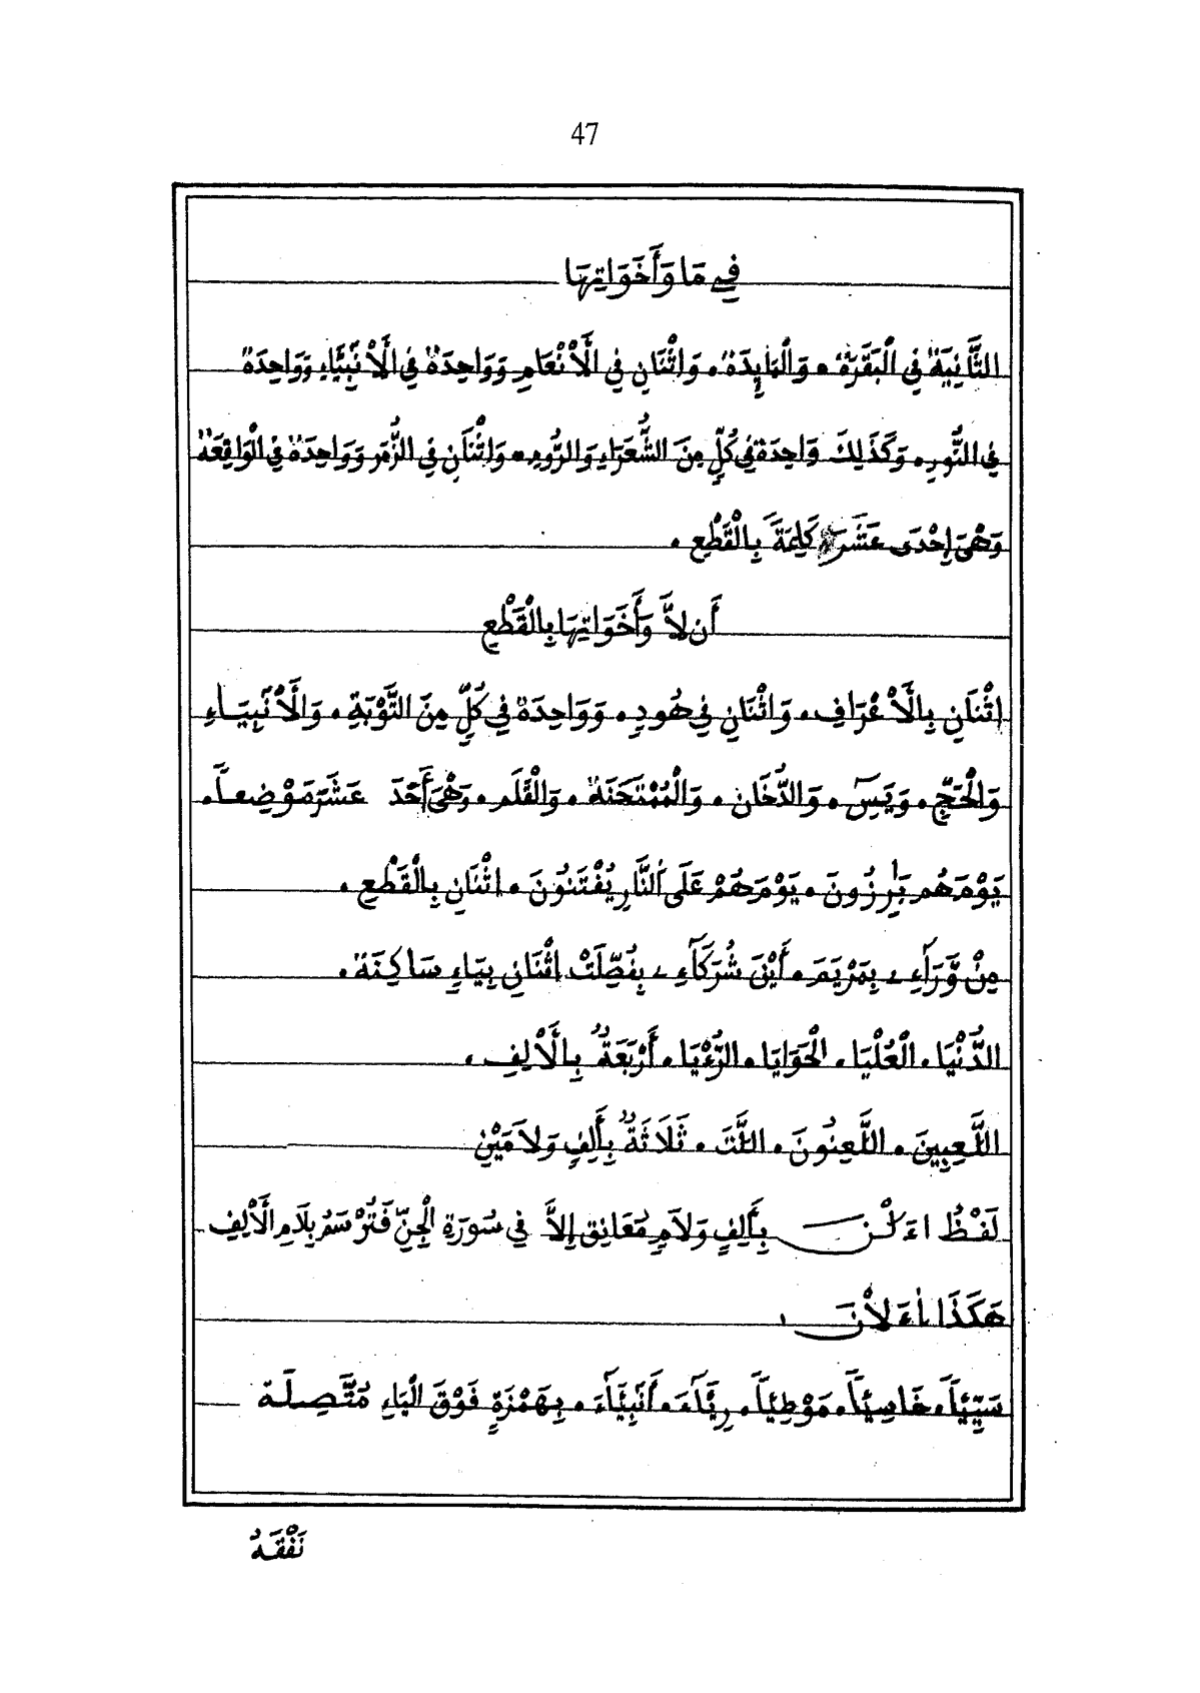 47
فِي مَا وَأَخَوَاتِهَا
الثَّانِيَةُ فِي الْبَقَرَةِ. وَالْمَايِدَةُ. وَاثْنَانِ فِي الْأَنْعَامِ وَوَاحِدَةٌ فِي الْأَنْبِيَاءِ وَوَاحِدَةٌ
فِي النُّورِ. وَكَذَلِكَ وَاحِدَةٌ فِي كُلٍّ مِنَ الشُّعَرَاءِ وَالرُّومِ. وَاثْنَانِ فِي الزُّمَرِ وَوَاحِدَةٌ فِي الْوَاقِعَةِ
وَهْيَ إِحْدَى عَشَرَة كَلِمَةً بِالْقَطْعِ.
أَن لاَّ وَأَخَوَاتِهَا بِالْقَطْعِ
اِثْنَانِ بِالْأَعْرَافِ. وَاثْنَانِ فِي هُودٍ. وَوَاحِدَةٌ فِي كُلٍّ مِنَ التَّوْبَةِ. وَالْأَنْبِيَاءِ
وَالْحَجِّ. وَيَسِ. وَالدُّخَانِ. وَالْمُمْتَحَنَةِ. وَالْقَلَمِ. وَهْيَ أَحَدَ عَشَرَ مَوْضِعاً.
يَوْمَ هُم بَٰرِزُونَ. يَوْمَ هُمْ عَلَى النَّارِ يُفْتَنُونَ. اِثْنَانِ بِالْقَطْعِ.
مِنْ وَّرَآءِے بِمَرْيَمَ. أَيْنَ شُرَكَآءِے بِفُصِّلَتْ اِثْنَانِ بِيَاءٍ سَاكِنَةٍ.
الدُّنْيَا. الْعُلْيَا. الْحَوَايَا. الرُّءْيَا. أَرْبَعَةٌ بِالْأَلِفِ.
اللَّعِبِينَ. اللَّعِنُونَ. اللَّتَ. ثَلَاثَةٌ بِأَلِفٍ وَلاَمَيْنِ
لَفْظُ اءَلْنَ بِأَلِفٍ وَلاَمٍ مُعَانِقٍ إِلاَّ فِي سُورَةِ الْجِنِّ فَتُرْسَمُ بِلَامِ الْأَلِفِ
هَكَذَا اءَلأْنَ
سَيِّئاً. خَاسِئاً. مَوْطِئاً. رِئَآءَ. أَنْبِئَآءَ. بِهَمْزَةٍ فَوْقَ الْيَاءِ مُتَّصِلَة
نَفْقَهُ